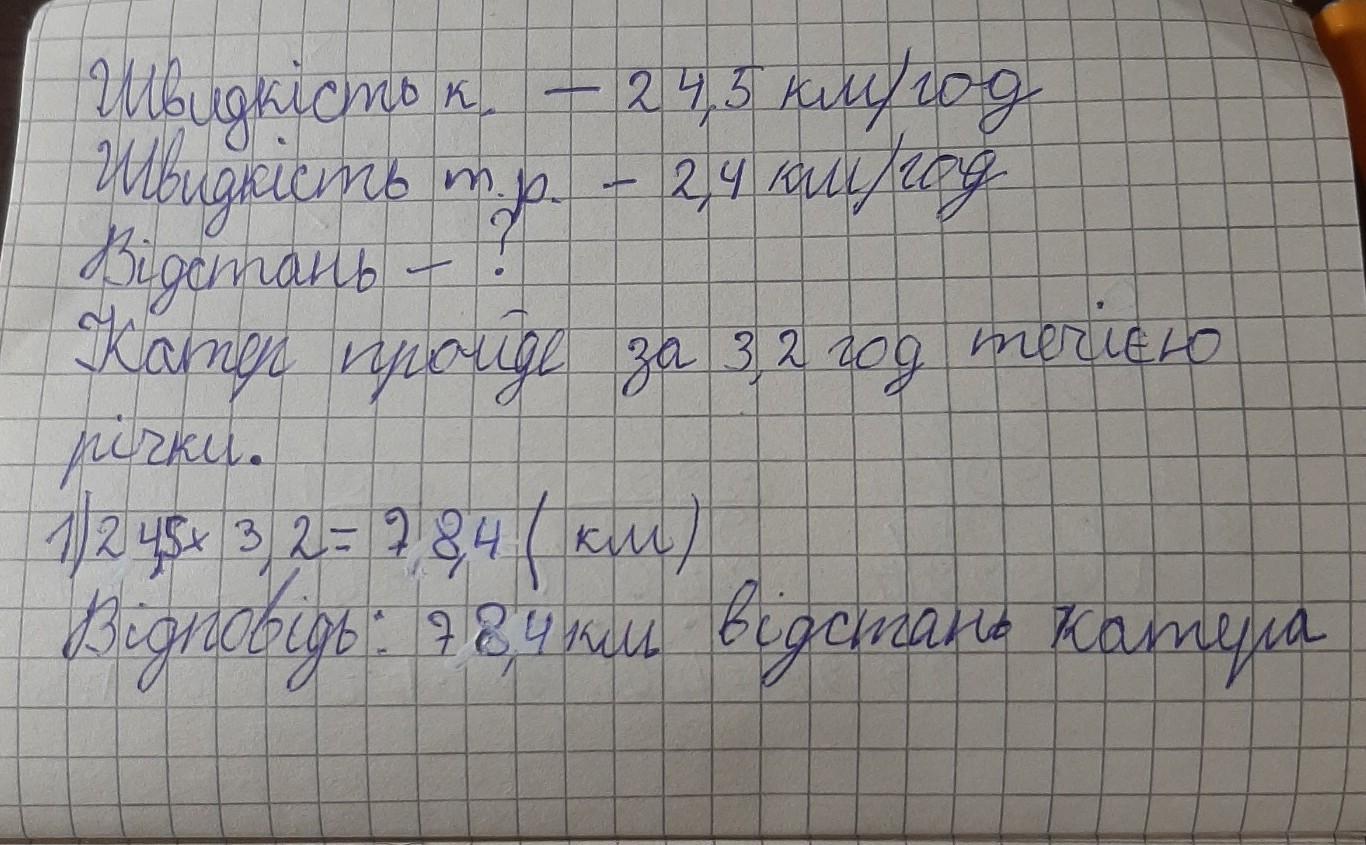 Швидкість к. – 24,5 км/год
Швидкість т.р. – 2,4 км/год
Відстань – ?
Катер пройде за 3,2 год течією
річки.
1) 24,5x 3,2 = 78,4 ( км)
Відповідь: 78,4 км відстань катера